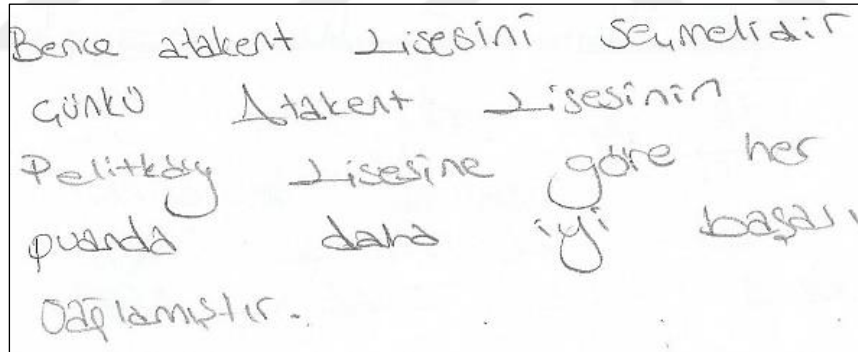 Bence atakent Lisesini seçmelidir
çünkü Atakent Lisesinin
Pelitköy Lisesine göre her
puanda daha iyi başarı
sağlamıştır.